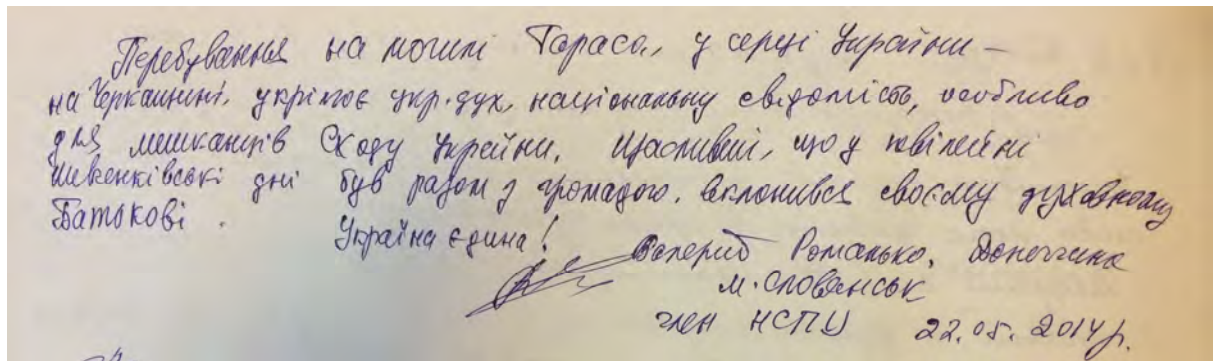 Перебування на могилі Тараса, у серці України –
на Черкащині, укріплює укр. дух, національну свідомість, особливо
для мешканців Сходу України. Щасливий, що у ювілейні
Шевченківські дні був разом з громадою, вклонився своєму духовному
Батькові.
Україна єдина!
Валерий Романько, Донеччина
м. Словянськ
член НСПУ 22.05.2014 р.